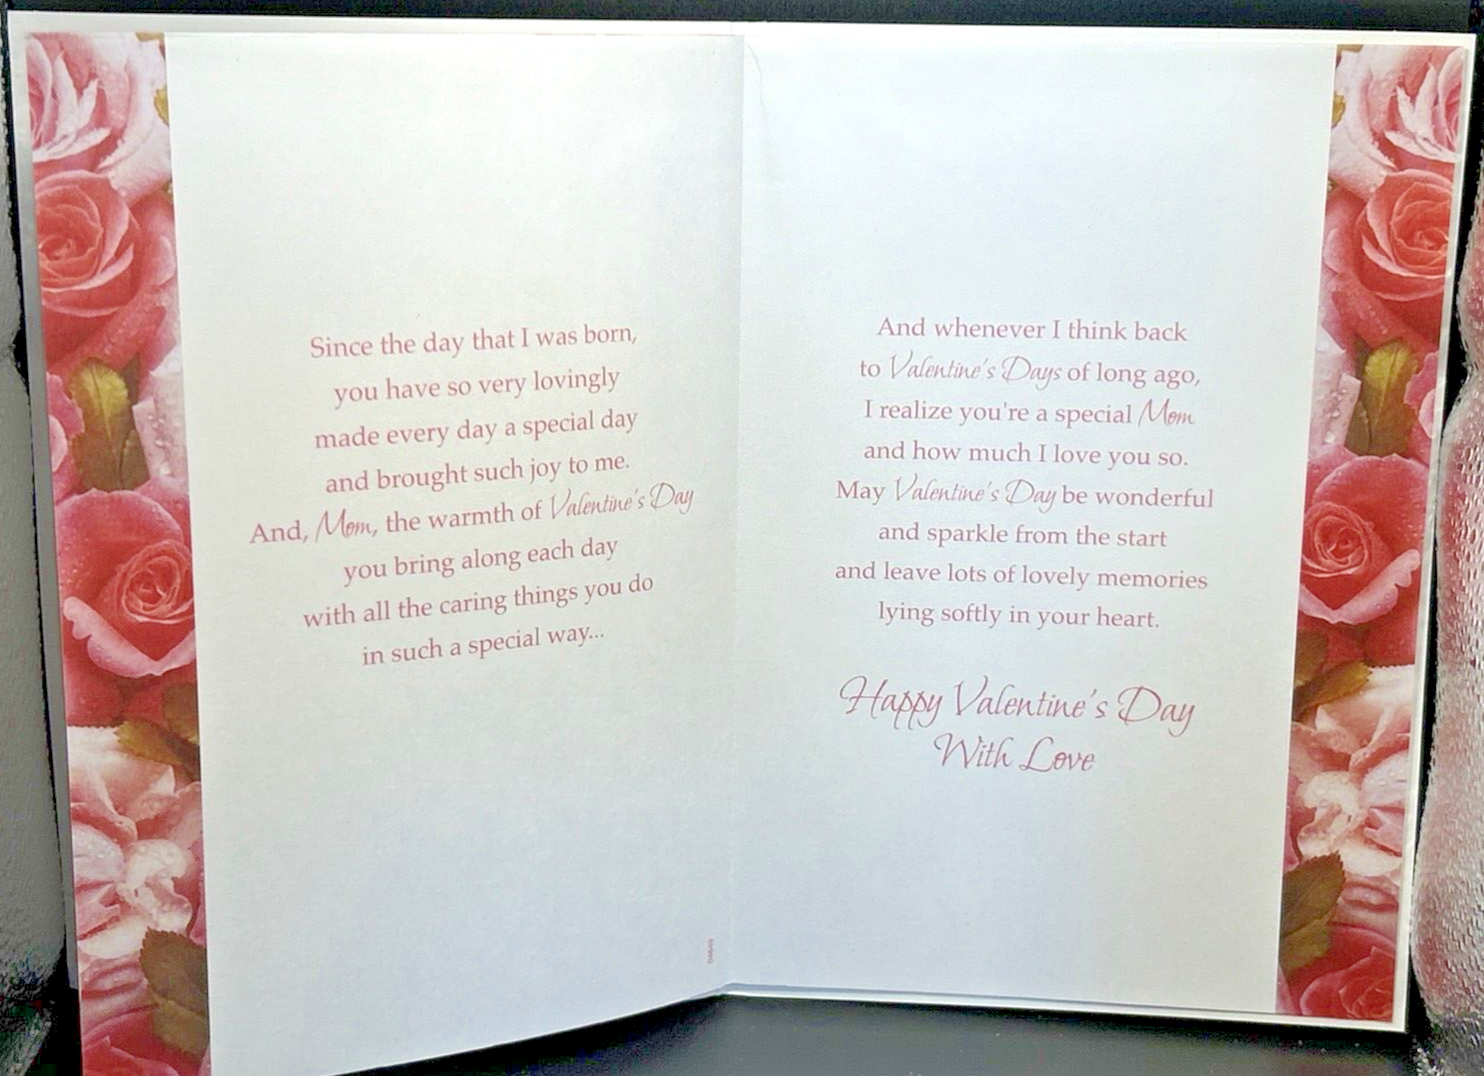 Since the day that I was born,
you have so very lovingly
made every day a special day
and brought such joy to me.
And, Mom, the warmth of Valentine's Day
you bring along each day
with all the caring things you do
in such a special way...
And whenever I think back
to Valentine's Days of long ago,
I realize you're a special Mom
and how much I love you so.
May Valentine's Day be wonderful
and sparkle from the start
and leave lots of lovely memories
lying softly in your heart.
Happy Valentine's Day
With Love